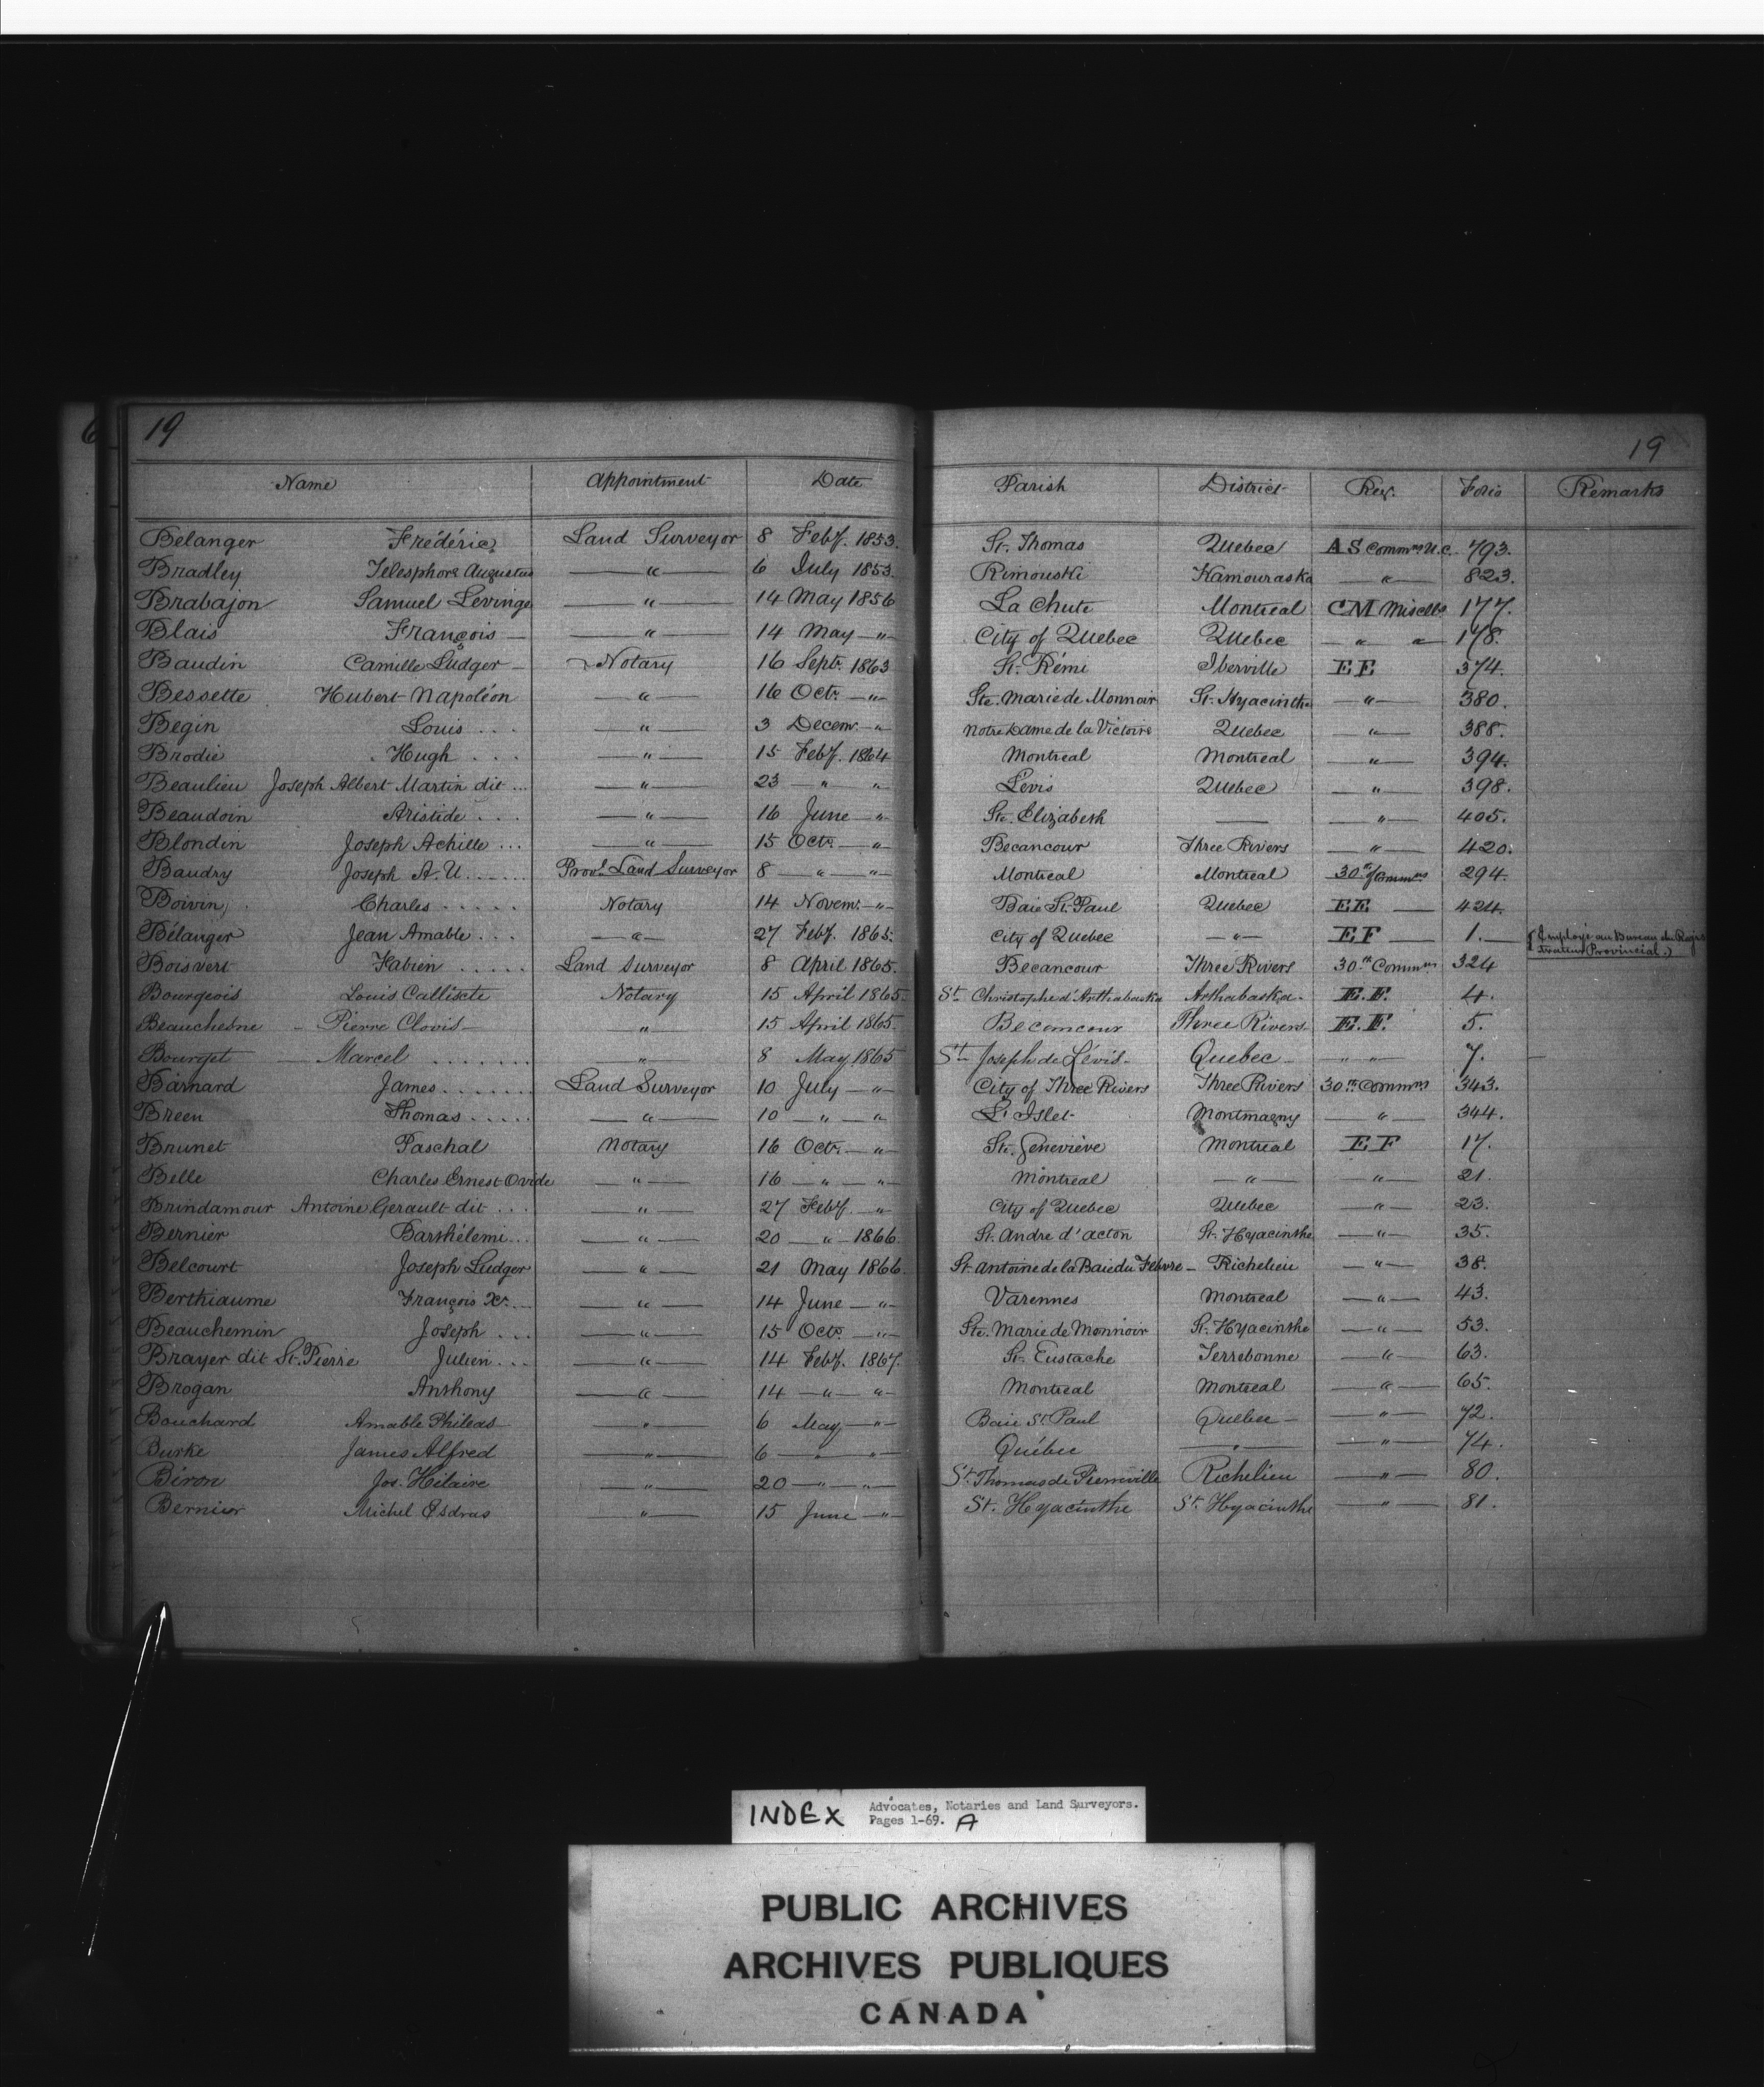 19
19
Name Appointment Date Parish District Reg. Folio Remarks
Belanger Frédéric Land Surveyor 8 Feby. 1853. St. Thomas Quebec A S Commns U.C. 793.
Bradley Telesphore Augustus — " — 6 July 1853. Rimouski Kamouraska — " — 823.
Brabajon Samuel Levinge — " — 14 May 1856 La Chute Montreal CM Miscells 177.
Blais François — — " — 14 May — " — City of Quebec Quebec — " " — 178.
Baudin Camille Ludger — Notary 16 Septr. 1863 St. Rémi Iberville E E 374.
Bessette Hubert Napoléon — " — 16 Octr. — " — Ste. Marie de Monnoir St. Hyacinthe — " — 380.
Begin Louis . . . — " — 3 Decem. — " Notre Dame de la Victoire Quebec — " — 388.
Brodie Hugh . . . — " — 15 Feby. 1864 Montreal Montreal — " — 394.
Beaulieu Joseph Albert Martin dit ... — " — 23 — " " Lévis Quebec — " — 398.
Beaudoin Aristide . . . — " — 16 June — " Ste. Elizabeth — — " — 405.
Blondin Joseph Achille ... — " — 15 Octr. — " Becancour Three Rivers — " — 420.
Baudry Joseph A. U. ...... Provl. Land Surveyor 8 — " — " — Montreal Montreal 30th Commns 294.
Boivin Charles ..... Notary 14 Novem. — " — Baie St. Paul Quebec E E — 424.
Bélanger Jean Amable ... — " — 27 Feby. 1865. City of Quebec — " — E F — 1. — (Employé au Bureau du Regis
trateur Provincial.)
Boisvert Fabien ..... Land Surveyor 8 April 1865. Becancour Three Rivers 30th Commns 324
Bourgeois Louis Calliscte Notary 15 April 1865. St. Christophe d'Arthabaska Arthabaska. E. F. 4.
Beauchesne — Pierre Clovis — " 15 April 1865. Becomcour Three Rivers E. F. 5.
Bourget — Marcel ....... — " — 8 May 1865 St. Joseph de Lévis — Quebec — — " " — 7.
Barnard James ....... Land Surveyor 10 July — " City of Three Rivers Three Rivers 30th Commns 343.
Breen Thomas ..... — " — 10 — " — " L'Islet Montmagny — " — 344.
Brunet Paschal Notary 16 Octr. — " Ste. Geneviève Montreal E F 17.
Belle Charles Ernest Ovide — " — 16 — " — " Montreal — " — — " — 21.
Brindamour Antoine Gerault dit ... — " — 27 Feby. — " City of Quebec Quebec — " — 23.
Bernier Barthélemi ... — " — 20 — " — 1866 St. Andre d'acton St. Hyacinthe — " — 35.
Belcourt Joseph Ludger — " — 21 May 1866. St. Antoine de la Baie du Febvre — Richelieu — " — 38.
Berthiaume François Xr. — — " — 14 June — " — Varennes Montreal — " — 43.
Beauchemin Joseph ... — " — 15 Octr. — " — Ste. Marie de Monnoir St. Hyacinthe — " — 53.
Brayer dit St. Pierre Julien ... — " — 14 Feby. 1867. St. Eustache Terrebonne — " — 63.
Brogan Anthony — " — 14 — " — " — Montreal Montreal — " — 65.
Bouchard Amable Phileas — — " — 6 May — " — Baie St. Paul Quebec — — " — 72.
Burke James Alfred — " — 6 — " — " — Québec — " — — " — 74.
Biron Jos. Hilaire — " — 20 — " — " — St. Thomas de Pierreville Richelieu — " — 80.
Bernier Michel Esdras — " — 15 June — " — St. Hyacinthe St. Hyacinthe — " — 81.
INDEX Advocates, Notaries and Land Surveyors.
Pages 1-69. A
PUBLIC ARCHIVES
ARCHIVES PUBLIQUES
CANADA